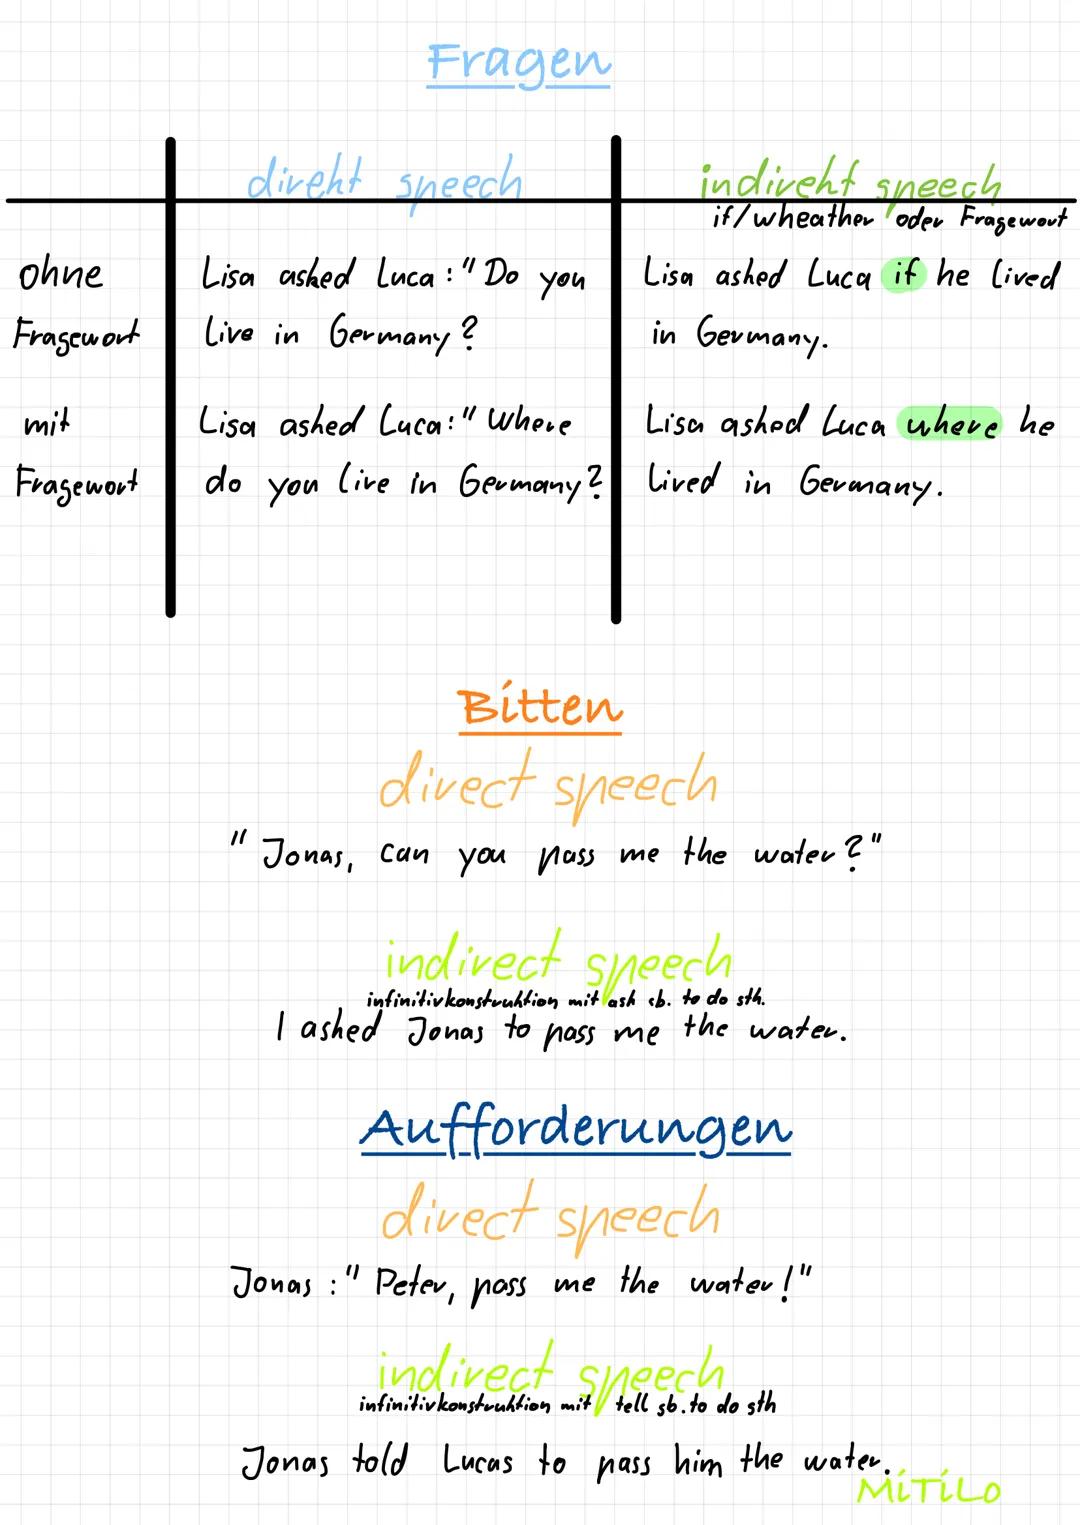 Fragen
direkt speech
indirekt speech
if/wheather oder Fragewort
ohne Fragewort
Lisa asked Luca:" Do you
live in Germany?
Lisa asked Luca if he lived
in Germany.
mit Fragewort
Lisa asked Luca:" Where
do you live in Germany?
Lisa asked Luca where he
lived in Germany.
Bitten
direct speech
" Jonas, can you pass me the water?"
indirect speech
infinitivkonstruktion mit ask sb. to do sth.
I asked Jonas to pass me the water.
Aufforderungen
direct speech
Jonas :" Peter, pass me the water!"
indirect speech
infinitivkonstruktion mit tell sb. to do sth
Jonas told Lucas to pass him the water.
MiTiLo